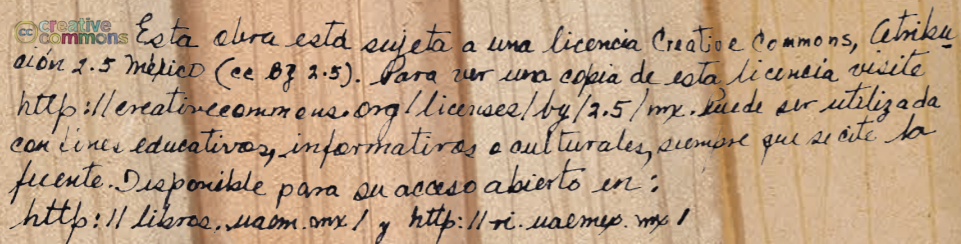 creative commons Esta obra está sujeta a una licencia Creative Commons, Atribu
ción 2.5 México (cc By 2.5). Para ver una copia de esta licencia visite
http://creativecommons.org/licenses/by/2.5/mx. Puede ser utilizada
con fines educativos, informativos o culturales, siempre que se cite la
fuente. Disponible para su acceso abierto en:
http://libros.uaem.mx/ y http://ri.uaemex.mx/